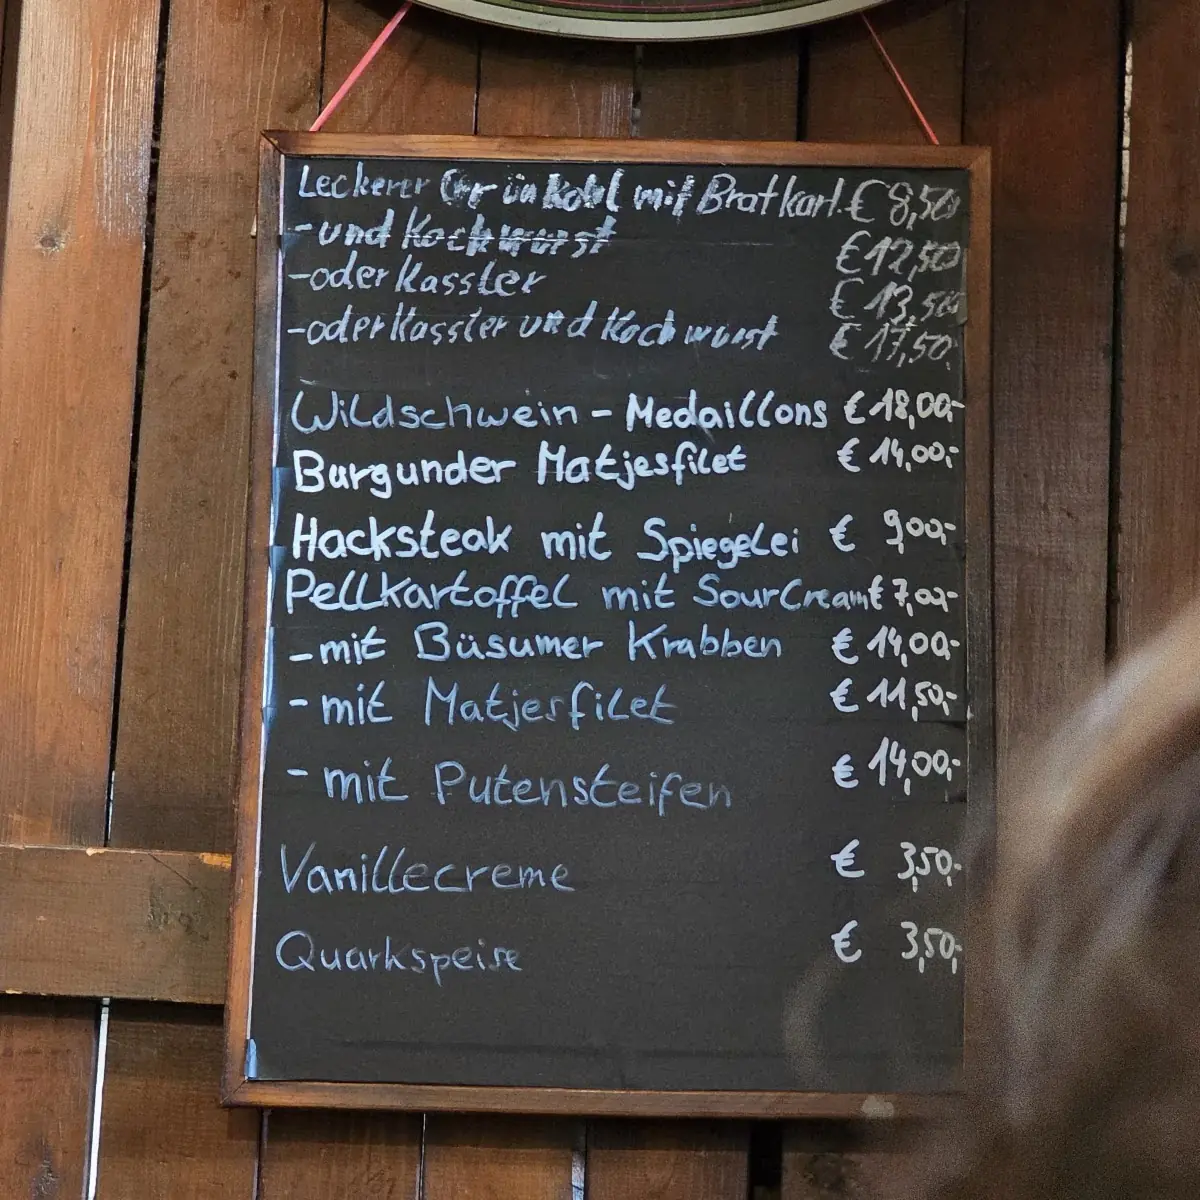 Leckerer Grünkohl mit Bratkart. € 8,50
- und Kochwurst € 12,50
- oder Kassler € 13,50
- oder Kassler und Kochwurst € 17,50
Wildschwein - Medaillons € 18,00,-
Burgunder Matjesfilet € 14,00,-
Hacksteak mit Spiegelei € 9,00,-
Pellkartoffel mit SourCream € 7,00,-
- mit Büsumer Krabben € 14,00,-
- mit Matjesfilet € 11,50,-
- mit Putensteifen € 14,00,-
Vanillecreme € 3,50,-
Quarkspeise € 3,50,-